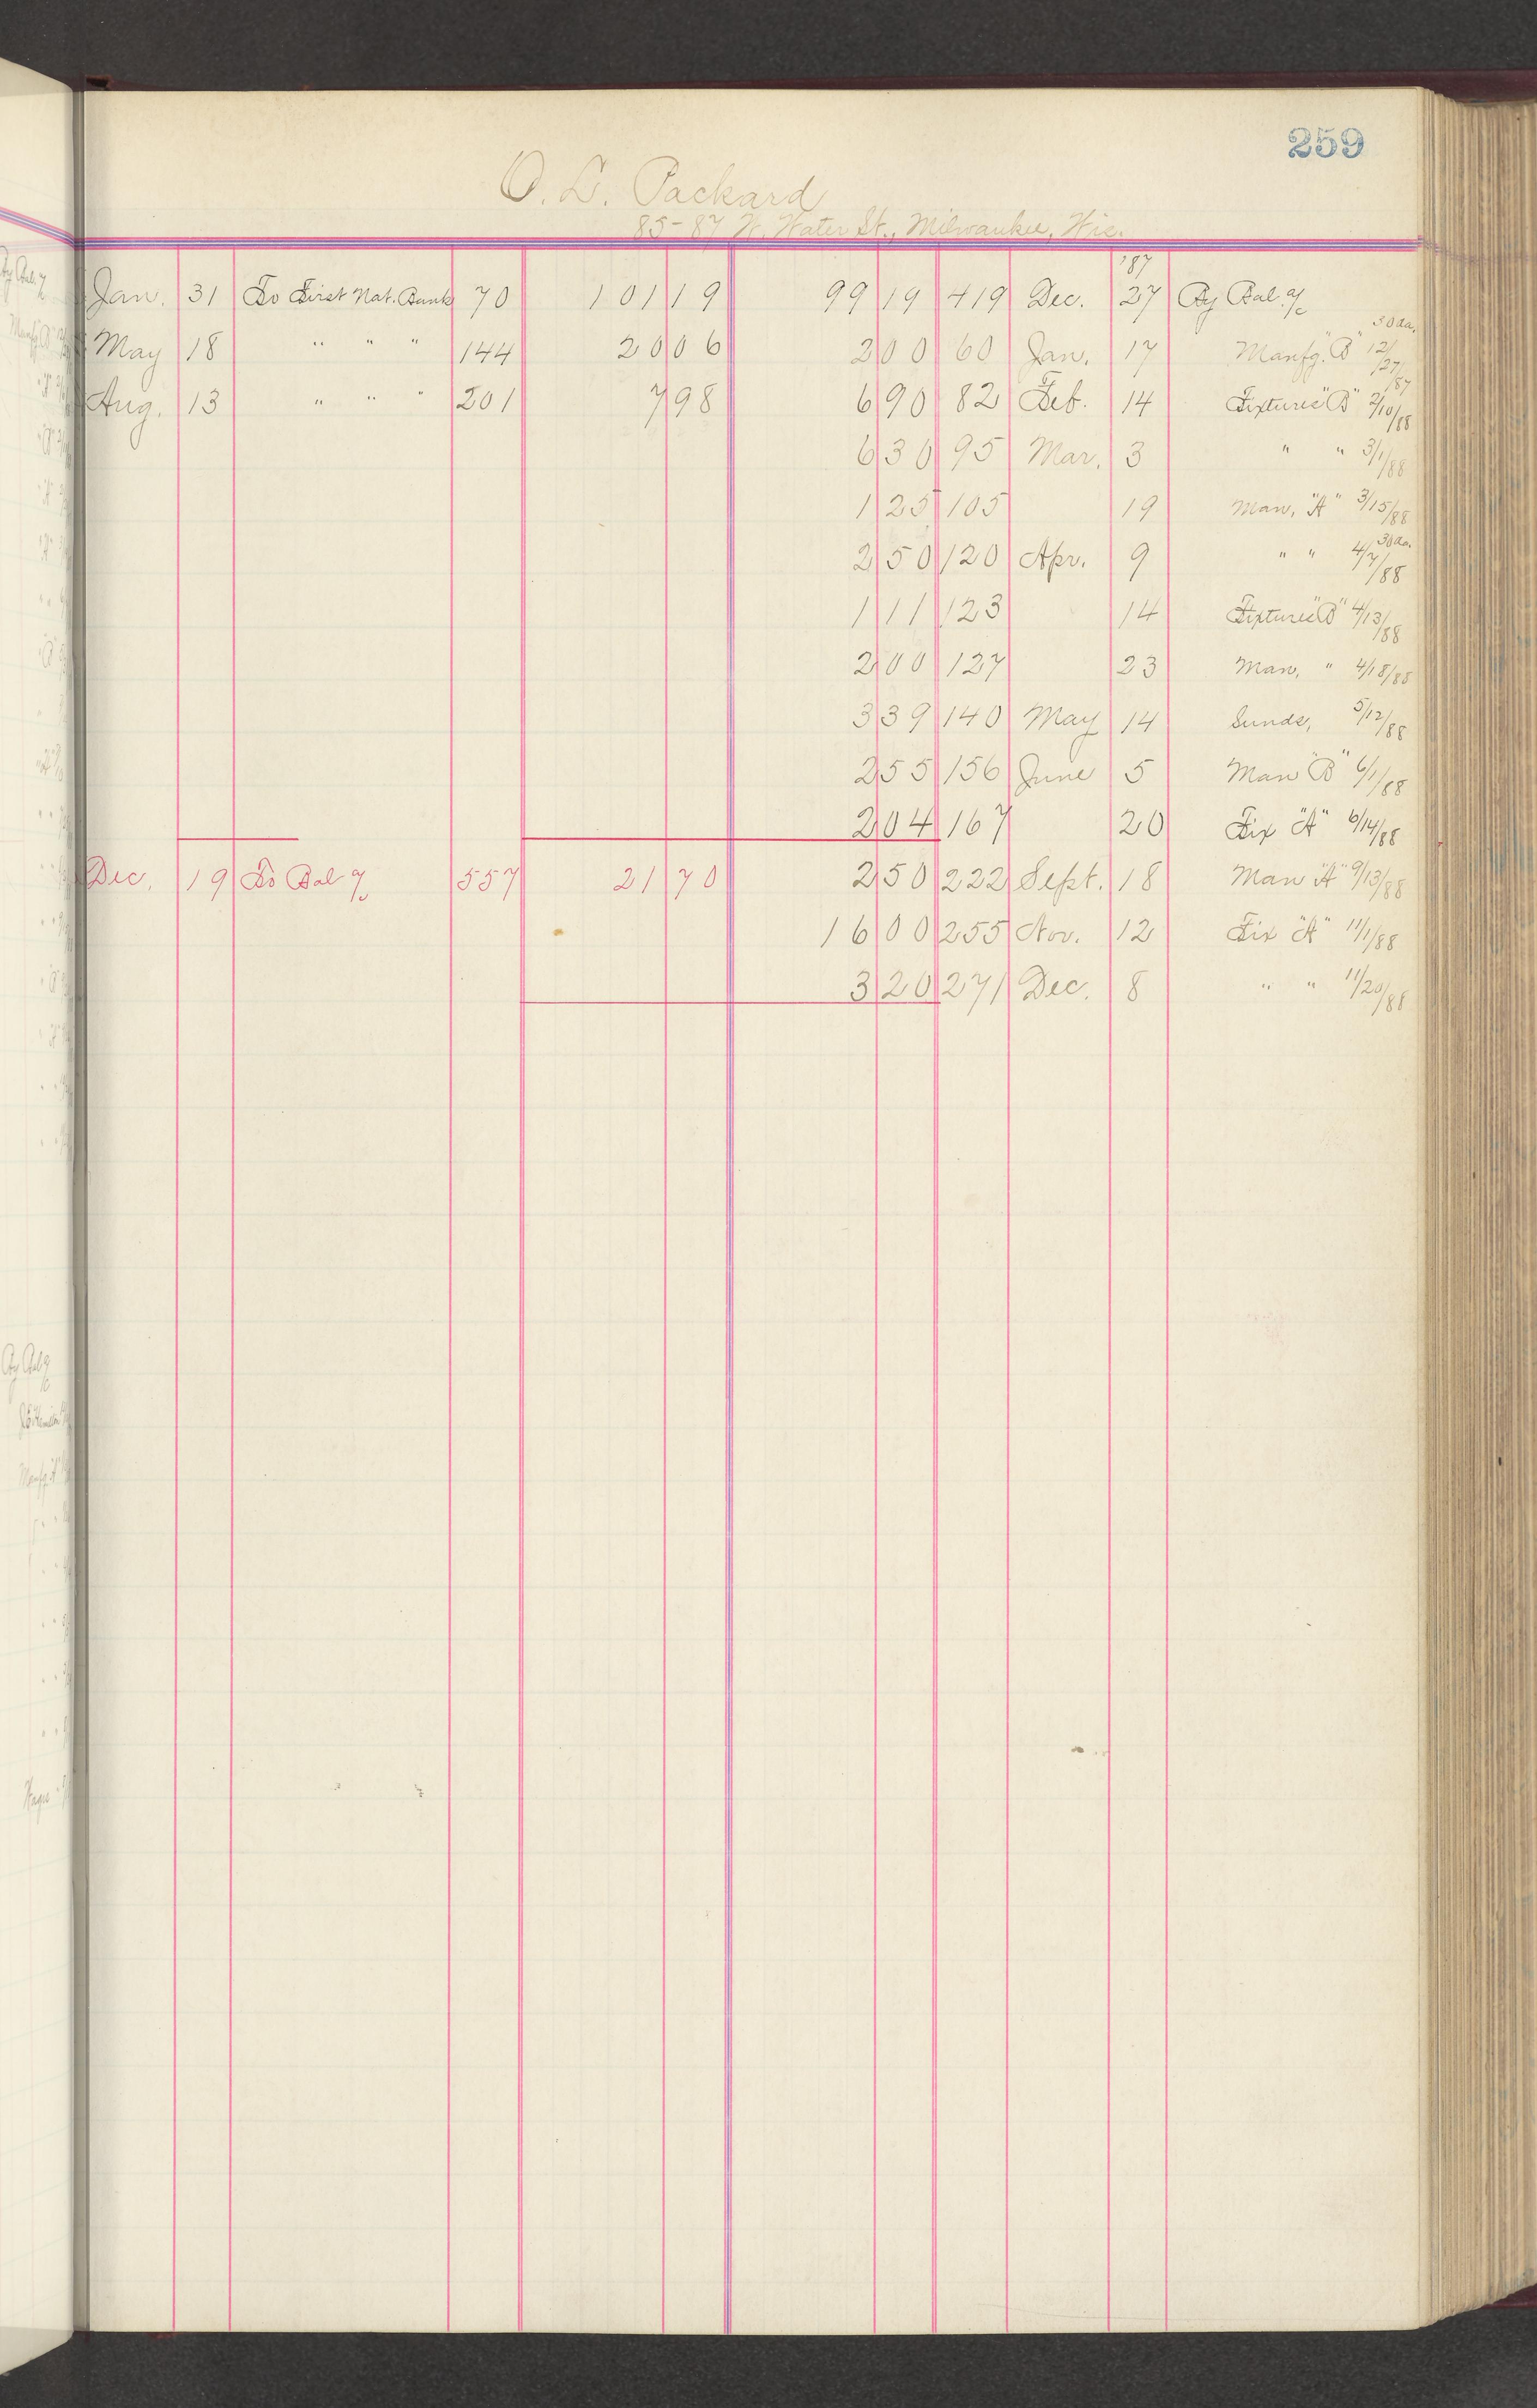 259
O. L. Packard
85-87 W. Water St., Milwaukee, Wis.
Jan. 31 To First Nat. Bank 70 101 19 99 19 419 Dec. '87 27 By Bal. a/c
May 18 " " " 144 20 06 2 00 60 Jan. 17 Manfg. "B" 12/27/87 30 da.
Aug. 13 " " " 201 7 98 6 90 82 Feb. 14 Fixtures "B" 2/10/88
6 30 95 Mar. 3 " " 3/1/88
1 25 105 19 Man. "A" 3/15/88
2 50 120 Apr. 9 " " 4/7/88 30 da.
1 11 123 14 Fixtures "B" 4/13/88
2 00 127 23 Man. " 4/18/88
3 39 140 May 14 Sunds. 5/12/88
2 55 156 June 5 Man "B" 6/1/88
2 04 167 20 Fix "A" 6/14/88
Dec. 19 To Bal a/c 557 21 70 2 50 222 Sept. 18 Man "A" 9/13/88
16 00 255 Nov. 12 Fix "A" 11/1/88
3 20 271 Dec. 8 " " 11/20/88